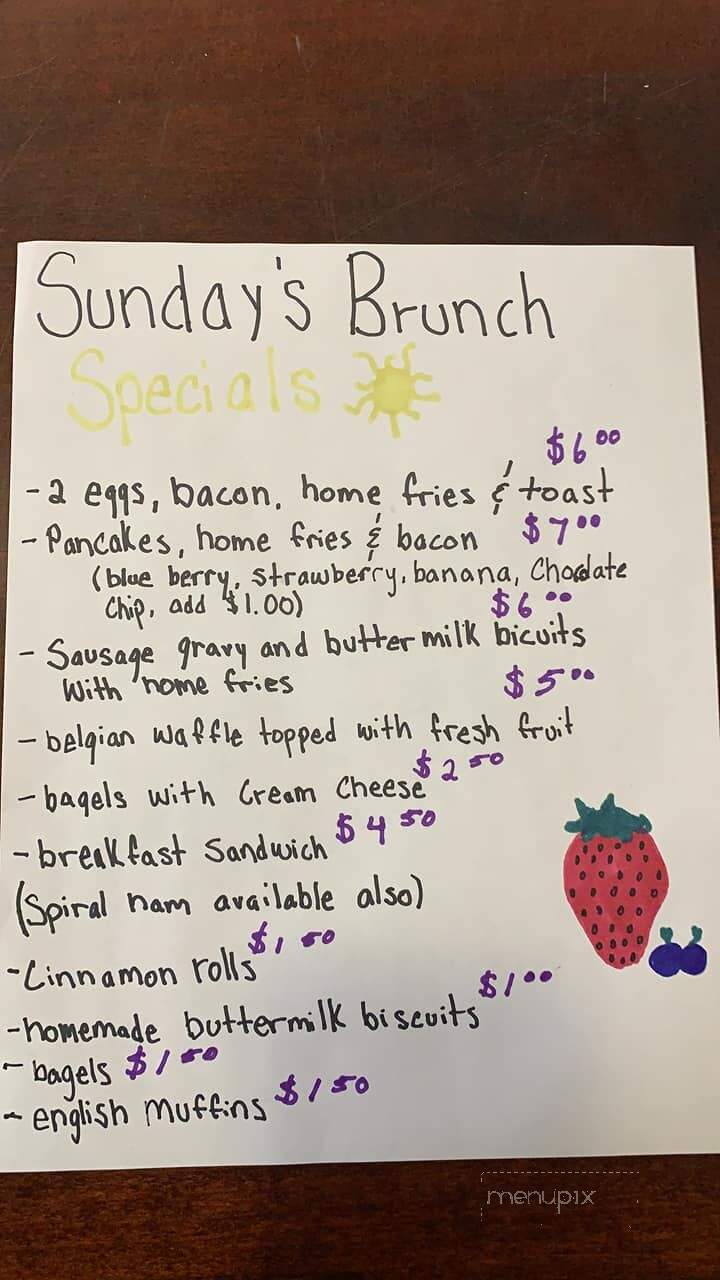 Sunday's Brunch
Specials
$6.00
- 2 eggs, bacon, home fries & toast
- Pancakes, home fries & bacon $7.00
(blue berry, strawberry, banana, Chocolate
Chip, add $1.00)
$6.00
- Sausage gravy and buttermilk bicuits
With home fries
$5.00
- belgian waffle topped with fresh fruit
- bagels with Cream Cheese $2.50
- breakfast Sandwich $4.50
(Spiral ham available also)
- Cinnamon rolls $1.50
- homemade buttermilk biscuits $1.00
- bagels $1.50
- english muffins $1.50
menupix